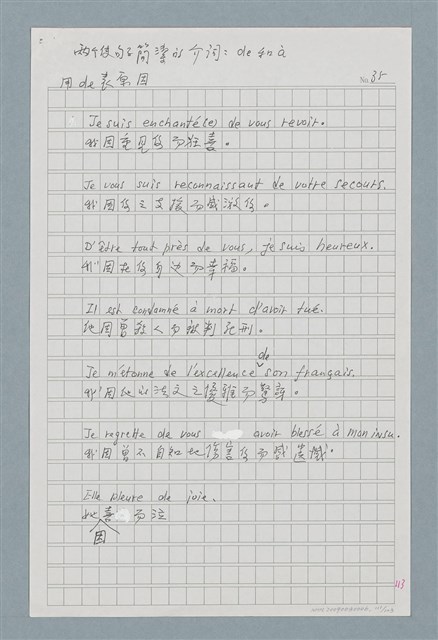 兩个使句子簡潔的介詞：de和à
用de表原因
No.38
Je suis enchanté(e) de vous revoir.
我因重見你而狂喜。
Je vous suis reconnaissant de votre secours.
我因你之支援而感激你。
D'être tout près de vous, je suis heureux.
我因在你身边而幸福。
Il est condamné à mort d'avoir tué.
他因曾殺人而被判死刑。
Je m'étonne de l'excellence de son français.
我因他的法文之優雅而驚訝。
Je regrette de vous avoir blessé à mon insu.
我因曾不自知地傷害你而感遺憾。
Elle pleure de joie.
她因喜而泣
113